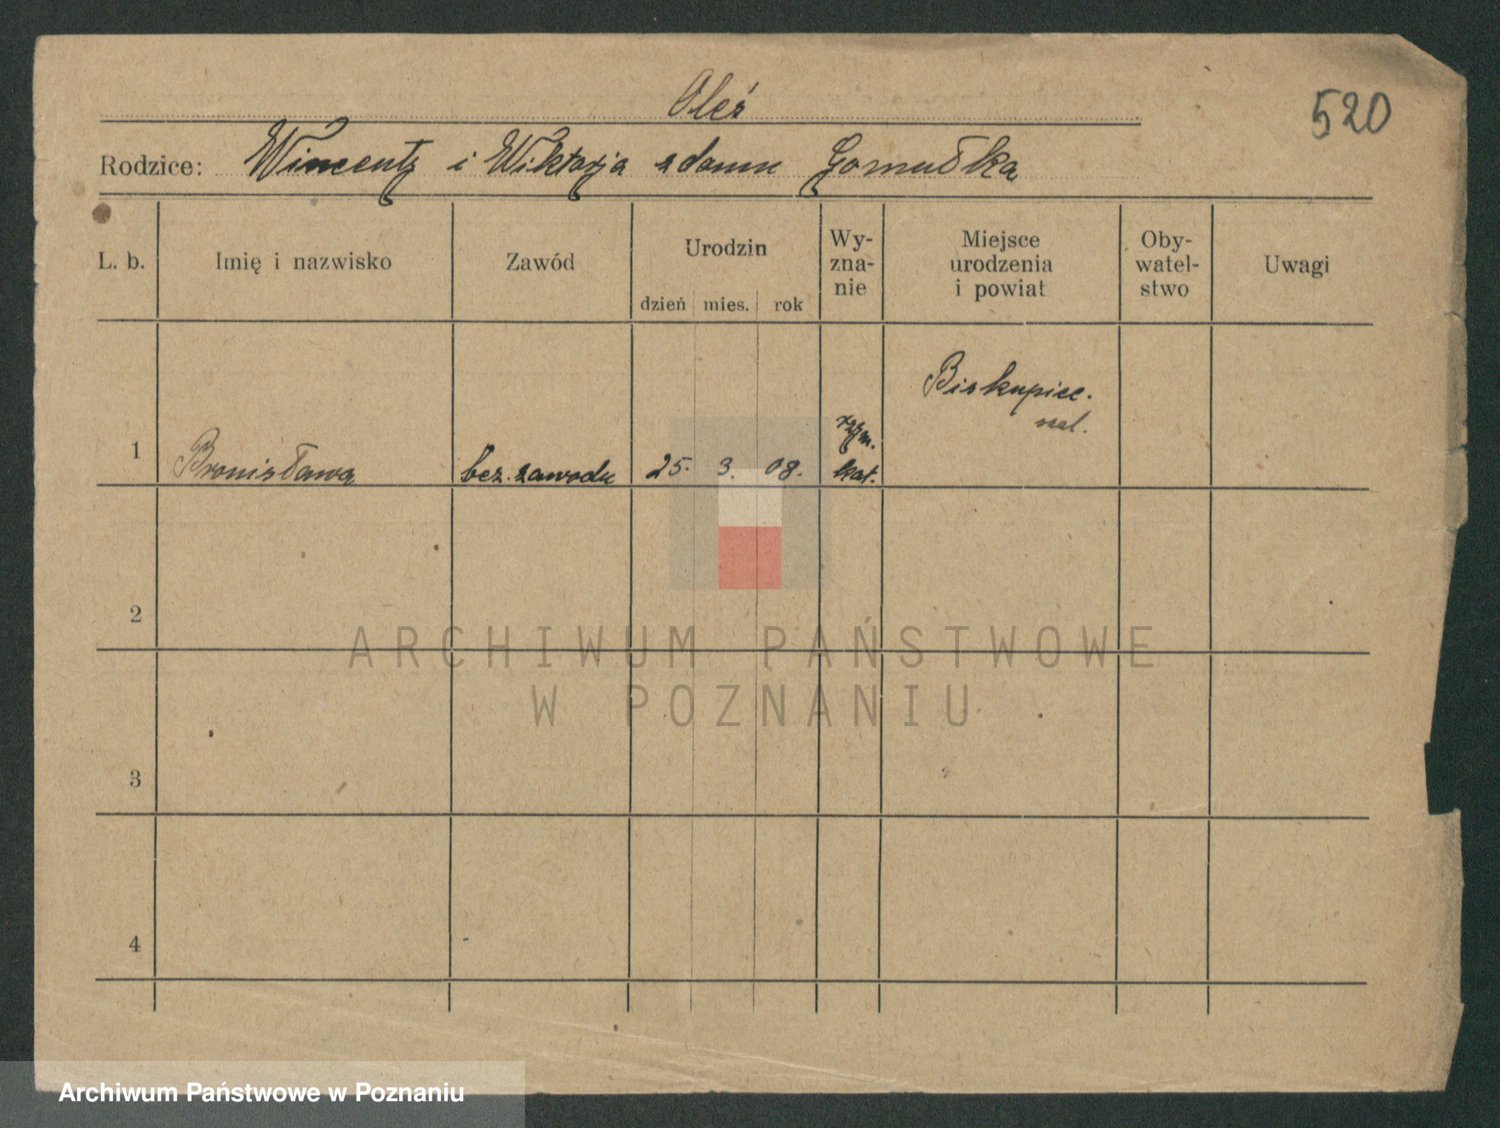 520
Oleś
Rodzice: Wincenty i Wiktorja z domu Gomułka
L. b. Imię i nazwisko Zawód Urodzin dzień mies. rok Wy-zna-nie Miejsce urodzenia i powiat Oby-watel-stwo Uwagi
Biskupiec.
1 Bronisława bez zawodu 25. 3. 08. rzym. kat.
2
ARCHIWUM PAŃSTWOWE
W POZNANIU
3
4
Archiwum Państwowe w Poznaniu